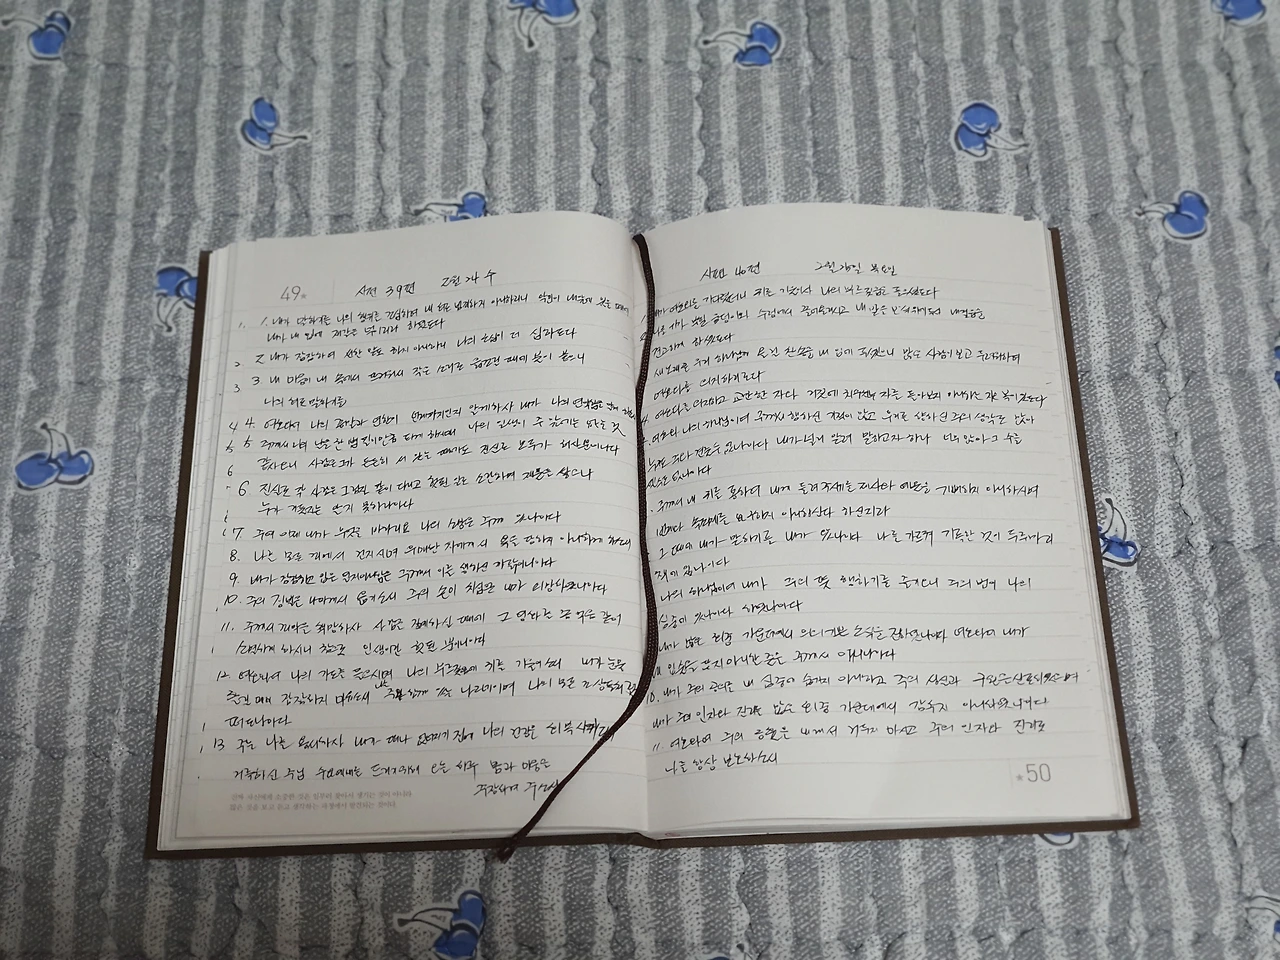 49
시편 39편 2월 24 수
1. 내가 말하기를 나의 행위를 조심하여 내 혀로 범죄하지 아니하리니 악인이 내 앞에 있을 때에
내가 내 입에 재갈을 먹이리라 하였도다
2 2 내가 잠잠하여 선한 말도 하지 아니하니 나의 근심이 더 심하도다
3 3. 내 마음이 내 속에서 뜨거워서 작은 소리로 읊조릴 때에 불이 붙으니
나의 혀로 말하기를
4 4 여호와여 나의 종말과 연한이 언제까지인지 알게하사 내가 나의
5 5 주께서 나의 날을 한 뼘 길이만큼 되게 하시매 나의 일생이 주 앞에는 없는 것
6 같사오니 사람은 그가 든든히 서 있는 때에도 진실로 모두가 허사뿐이니이다
6 진실로 각 사람은 그림자 같이 다니고 헛된 일로 소란하며 재물을 쌓으나
누가 거둘는지 알지 못하나이다
7 주여 이제 내가 무엇을 바라리요 나의 소망은 주께 있나이다
8. 나를 모든 죄에서 건지시며 우매한 자에게서 욕을 당하지 아니하게 하소서
9. 내가 잠잠하고 입을 열지 아니함은 주께서 이를 행하신 까닭이니이다
10. 주의 징벌을 나에게서 옮기소서 주의 손이 치심으로 내가 쇠망하였나이다
11. 주께서 죄악을 책망하사 사람을 징계하실 때에 그 영화를 좀먹음 같이
소멸하게 하시니 참으로 인생이란 헛된 것이니이다
12 여호와여 나의 기도를 들으시며 나의 부르짖음에 귀를 기울이소서 내가 눈물
흘릴 때에 잠잠하지 마옵소서 나는 주와 함께 있는 나그네이며 나의 모든 조상들처럼
떠도나이다
13 주는 나를 용서하사 내가 떠나 없어지기 전에 나의 건강을 회복시키소서
거룩하신 주님 오늘 하루 몸과 마음을
주장하여 주소서
시편 40편 2월 25일 목요일
내가 여호와를 기다리고 기다렸더니 귀를 기울이사 나의 부르짖음을 들으셨도다
나를 기가 막힐 웅덩이와 수렁에서 끌어올리시고 내 발을 반석 위에 두사 내 걸음을
견고하게 하셨도다
새 노래 곧 우리 하나님께 올릴 찬송을 내 입에 두셨으니 많은 사람이 보고 두려워하여
여호와를 의지하리로다
4. 여호와를 의지하고 교만한 자와 거짓에 치우치는 자를 돌아보지 아니하는 자는 복이 있도다
여호와 나의 하나님이여 주께서 행하신 기적이 많고 우리를 향하신 주의 생각도 많아
누구도 주와 견줄 수 없나이다 내가 널리 알려 말하고자 하나 너무 많아 그 수를
셀 수도 없나이다
주께서 내 귀를 통하여 내게 들려 주시기를 제사와 예물을 기뻐하지 아니하시며
번제와 속죄제를 요구하지 아니하신다 하신지라
그 때에 내가 말하기를 내가 왔나이다 나를 가리켜 기록한 것이 두루마리
책에 있나이다
나의 하나님이여 내가 주의 뜻 행하기를 즐기오니 주의 법이 나의
심중에 있나이다 하였나이다
내가 많은 회중 가운데에서 의의 기쁜 소식을 전하였나이다 여호와여 내가
내 입술을 닫지 아니한 줄을 주께서 아시나이다
10. 내가 주의 공의를 내 심중에 숨기지 아니하고 주의 성실과 구원을 선포하였으며
내가 주의 인자와 진리를 많은 회중 가운데에서 감추지 아니하였나이다
11 여호와여 주의 긍휼을 내게서 거두지 마시고 주의 인자와 진리로
나를 항상 보호하소서
50